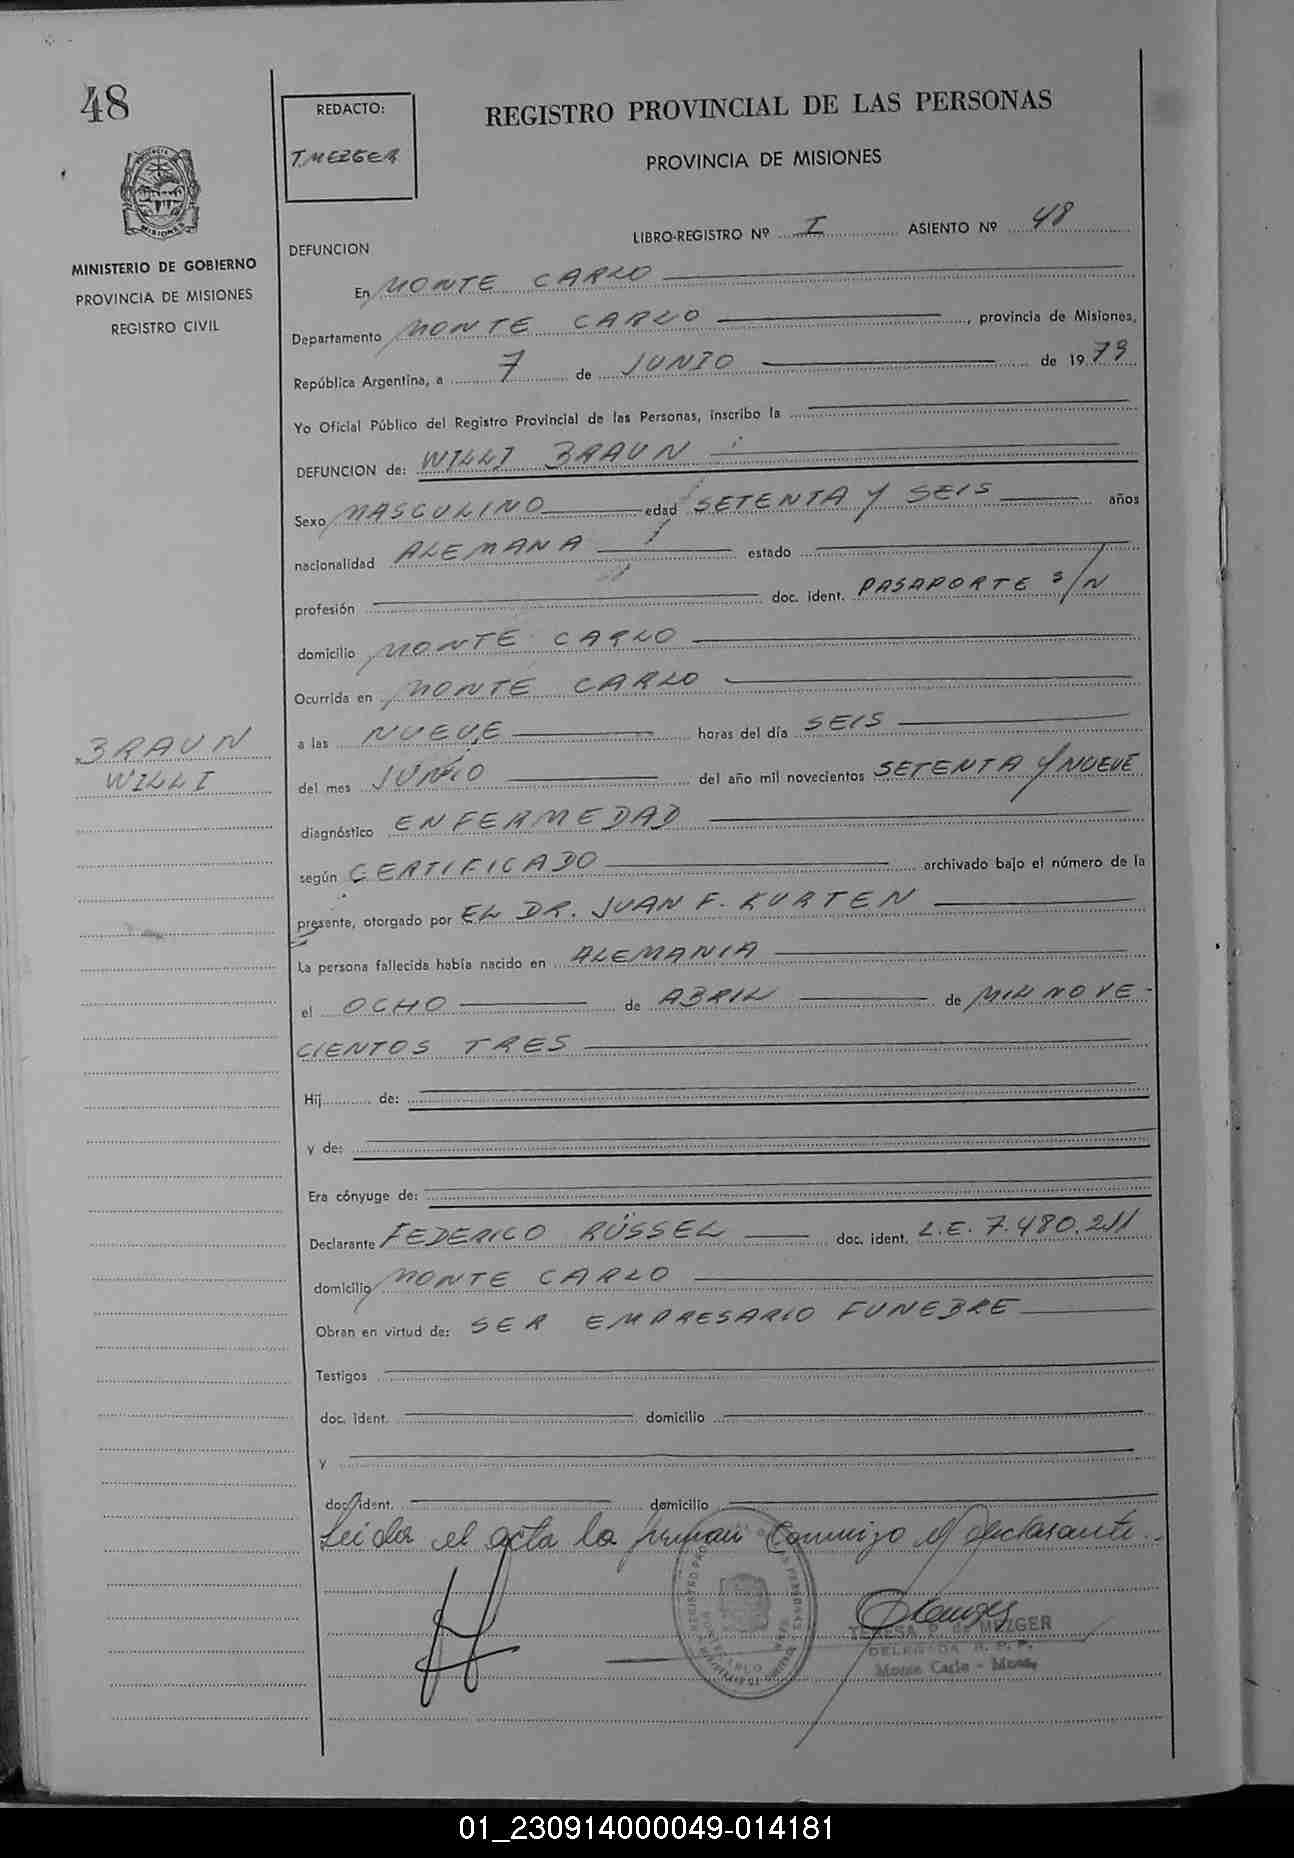 48
REDACTO:
T. MEZGER
REGISTRO PROVINCIAL DE LAS PERSONAS
PROVINCIA DE MISIONES
MISIONES
MINISTERIO DE GOBIERNO
PROVINCIA DE MISIONES
REGISTRO CIVIL
LIBRO-REGISTRO Nº I ASIENTO Nº 48
DEFUNCION
En MONTE CARLO
Departamento MONTE CARLO, provincia de Misiones,
República Argentina, a 7 de JUNIO de 1979
Yo Oficial Público del Registro Provincial de las Personas, inscribo la
DEFUNCION de: WILLI BRAUN
Sexo MASCULINO edad SETENTA Y SEIS años
nacionalidad ALEMANA estado
profesión doc. ident. PASAPORTE S/N
domicilio MONTE CARLO
Ocurrida en MONTE CARLO
BRAUN
WILLI
a las NUEVE horas del día SEIS
del mes JUNIO del año mil novecientos SETENTA Y NUEVE
diagnóstico ENFERMEDAD
según CERTIFICADO archivado bajo el número de la
presente, otorgado por EL DR. JUAN F. KURTEN
La persona fallecida había nacido en ALEMANIA
el OCHO de ABRIL de MIL NOVE-
CIENTOS TRES
Hij de:
y de:
Era cónyuge de:
Declarante FEDERICO RÜSSEL doc. ident. L.E. 7.480.211
domicilio MONTE CARLO
Obran en virtud de: SER EMPRESARIO FUNEBRE
Testigos
doc. ident. domicilio
y
doc. ident. domicilio
Leida el acta la firman conmigo el declarante.
TERESA R. de MEZGER
DELEGADA R. P. P.
Monte Carlo - Mnes.
01_230914000049-014181